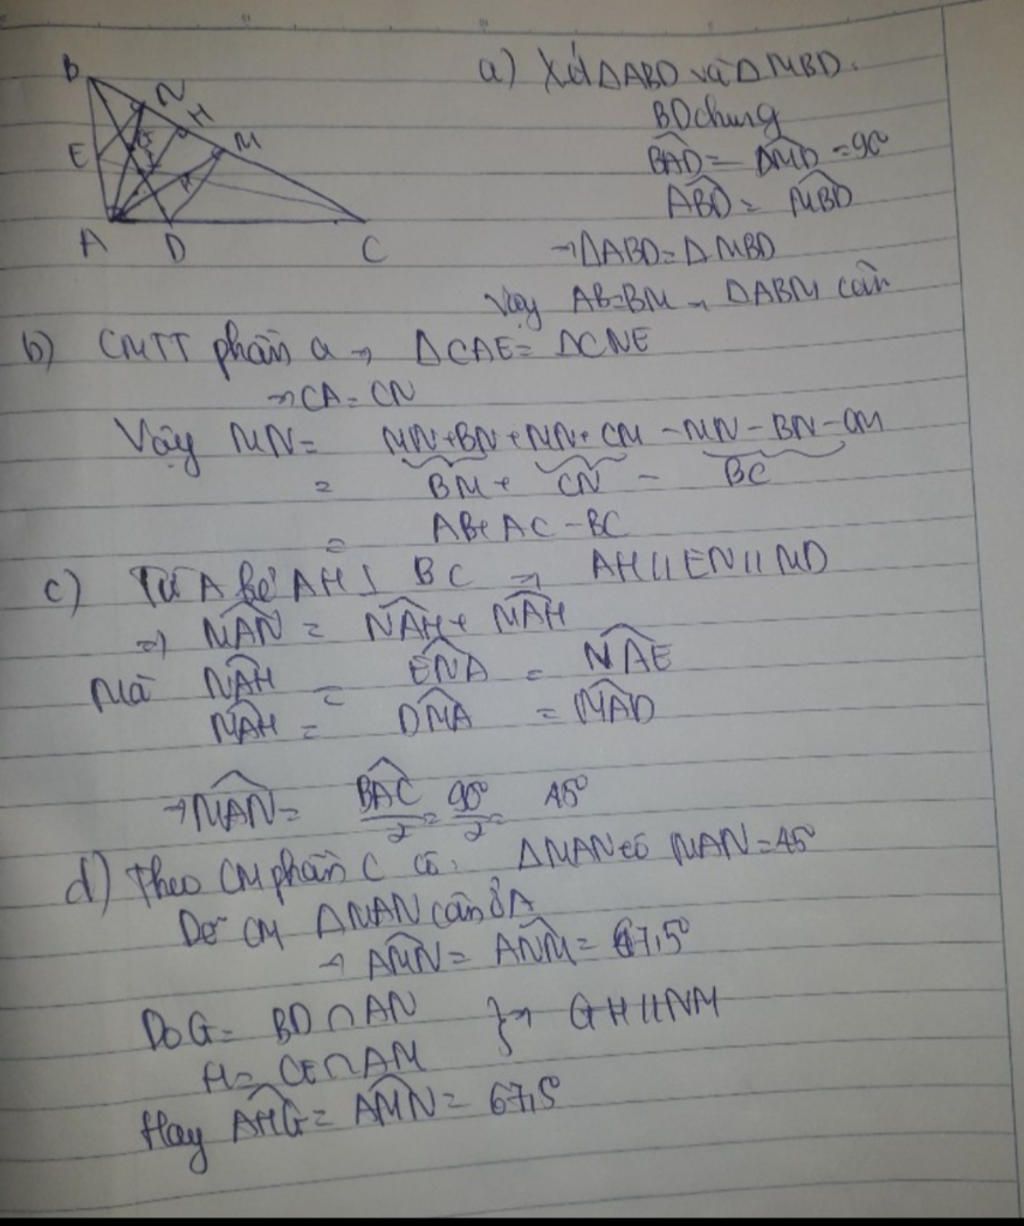 B
N
H
M
E
G
I
A
D
C
a) Xét ΔABD và ΔMBD.
BD chung
BAD = DMD = 90°
ABD = MBD
→ ΔABD = ΔMBD
Vậy AB = BM → ΔABM cân
b) CMTT phần a → ΔCAE = ΔCNE
→ CA = CN
Vậy MN = MN + BN + MN + CM - MN - BN - CM
= BM + CN - BC
= AB + AC - BC
c) Từ A kẻ AH ⊥ BC → AH // EN // MD
⇒ MAN = NAH + MAH
Mà NAH = ENA = NAE
MAH = DMA = MAD
→ MAN = BAC/2 = 90°/2 = 45°
d) Theo CM phần c có: ΔMAN có MAN = 45°
Dễ CM ΔMAN cân ở A
→ AMN = ANM = 67,5°
Do G = BD ∩ AN
H = CE ∩ AM } → GH // NM
Hay AHG = AMN = 67,5